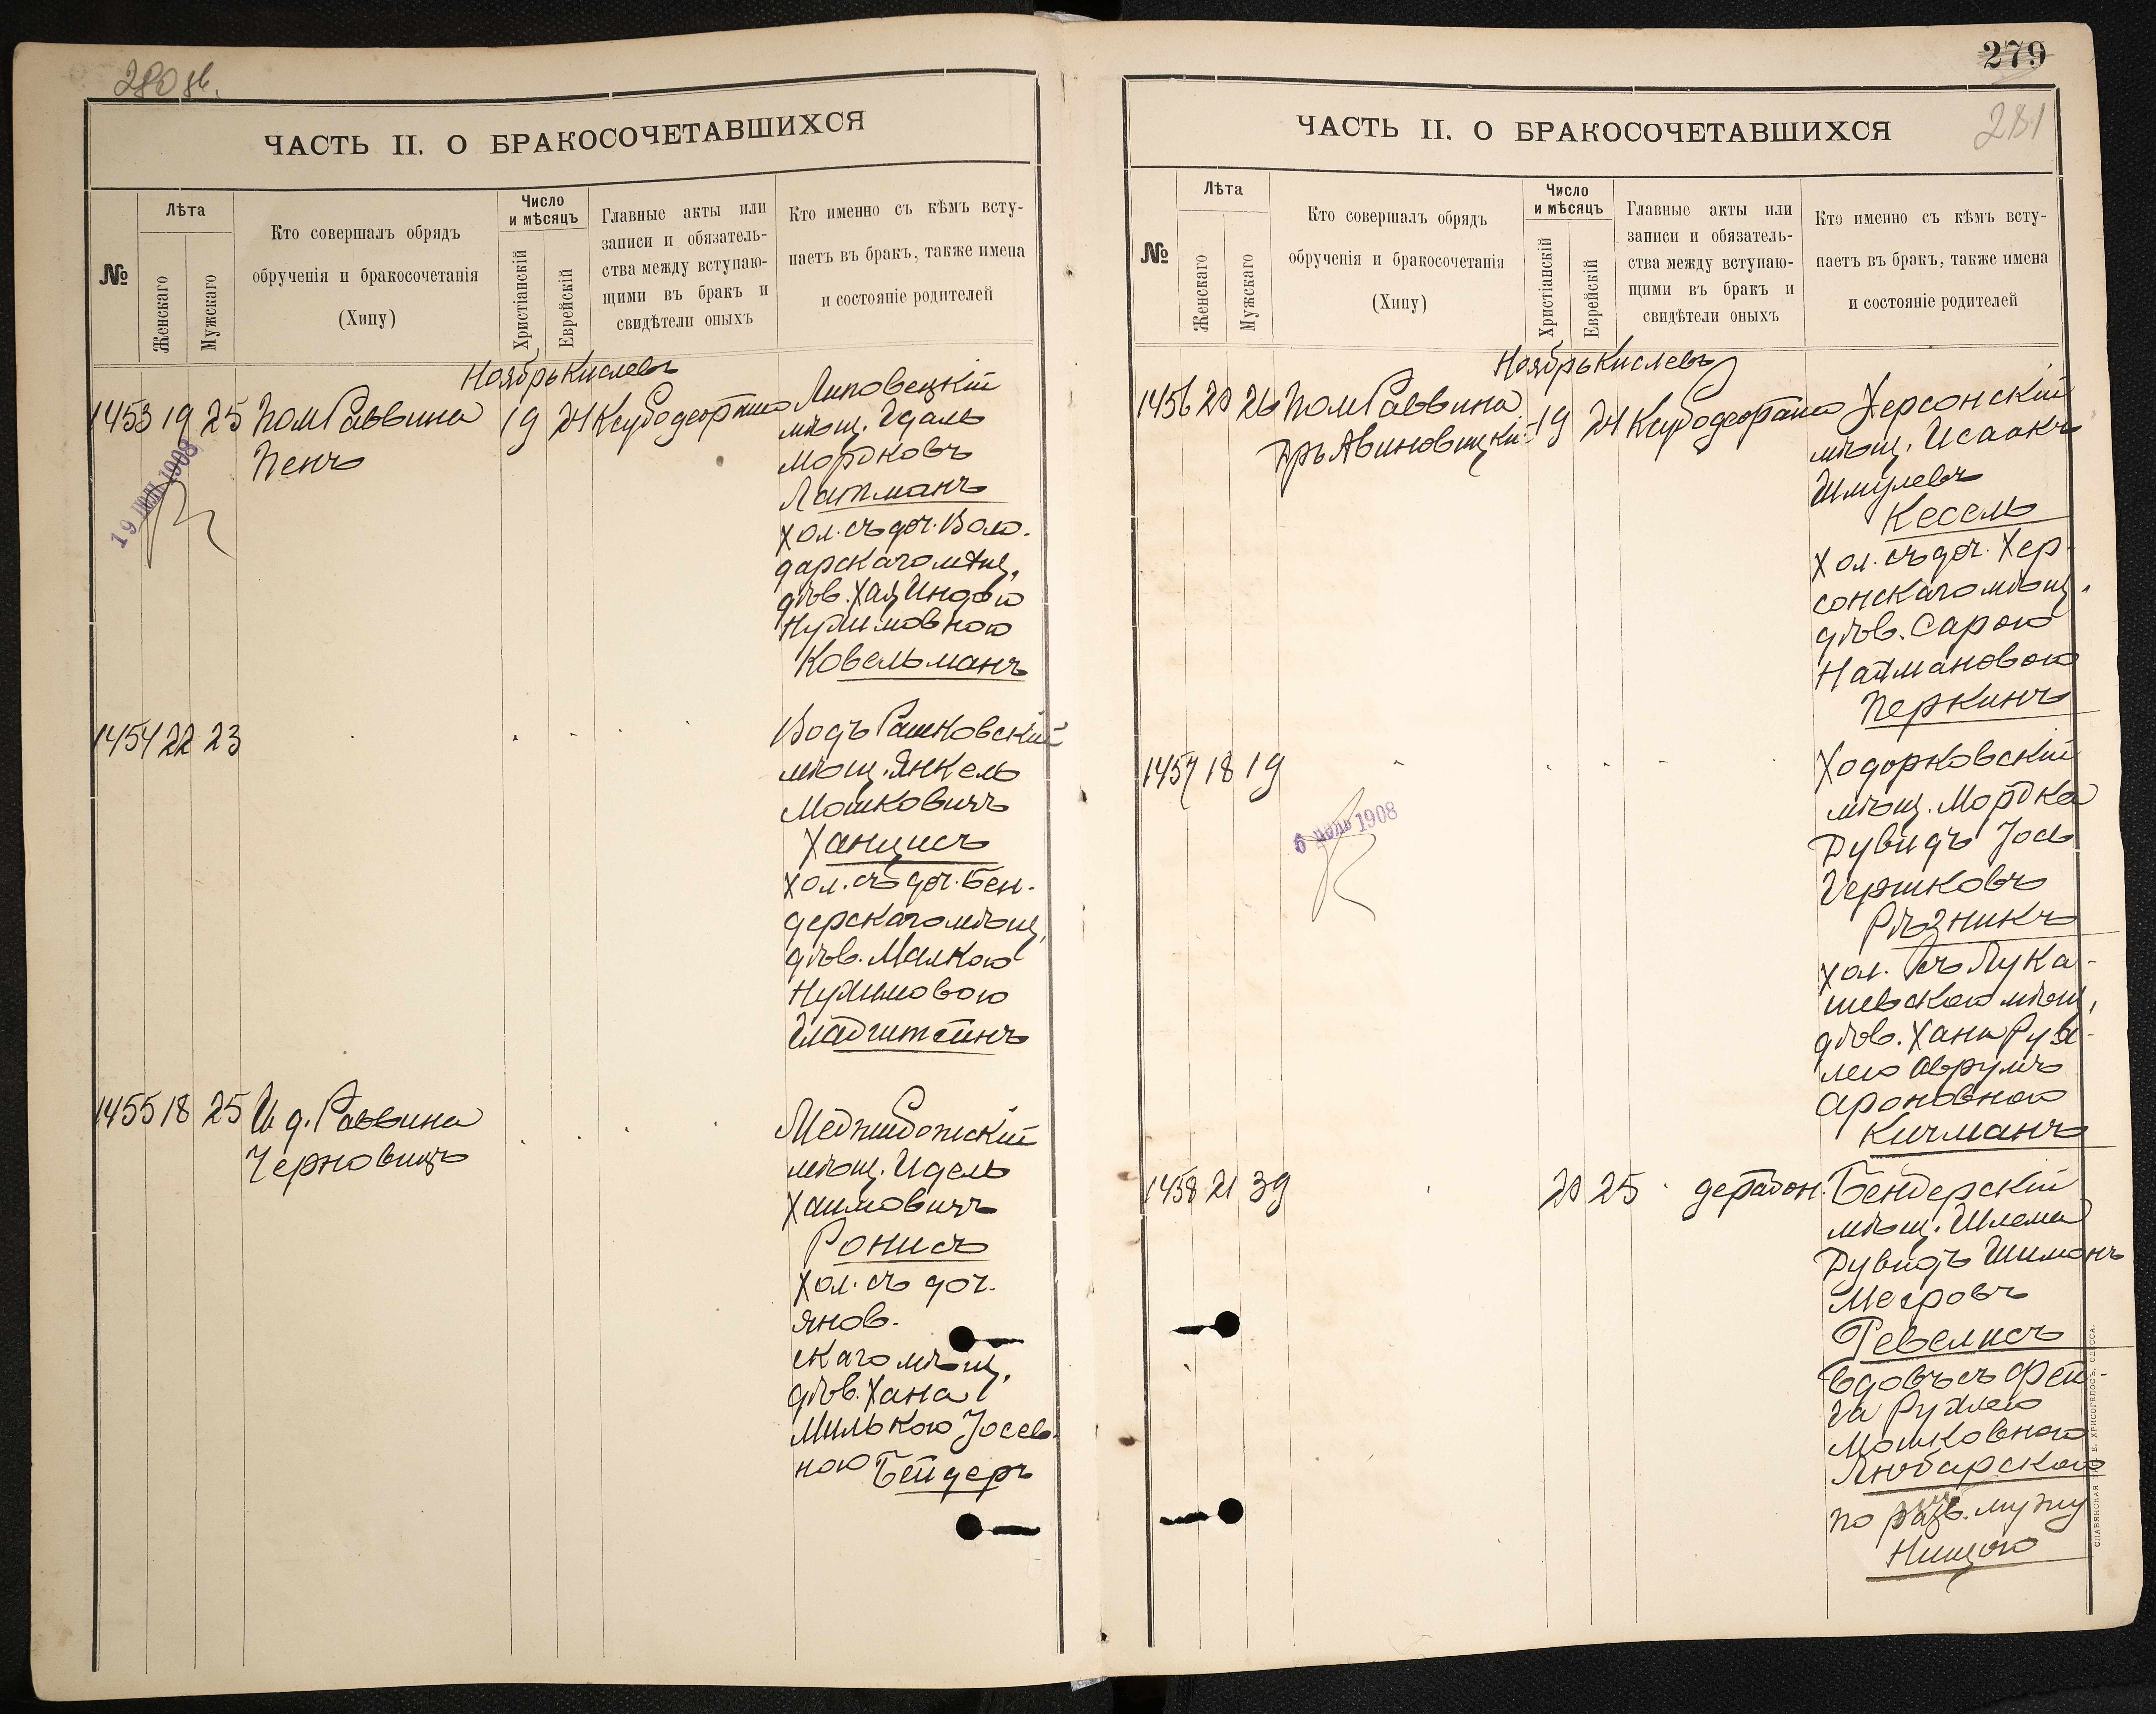 280 об.
ЧАСТЬ II. О БРАКОСОЧЕТАВШИХСЯ
№
Лѣта
Женскаго
Мужскаго
Кто совершалъ обрядъ
обрученія и бракосочетанія
(Хипу)
Число
и мѣсяцъ
Христіанскій
Еврейскій
Главные акты или
записи и обязатель-
ства между вступаю-
щими въ бракъ и
свидѣтели оныхъ
Кто именно съ кѣмъ всту-
паетъ въ бракъ, также имена
и состояніе родителей
Ноябрь Кислевъ
1453 19 25 Пом Раввина 19 24
Пенъ
19 1908
Липовецкій
мѣщ. Идаль
Мордковъ
Латманъ
хол. съ доч. Воло-
дарскаго мѣщ.
дѣв. Хая Индою
Нухимовною
Ковельманъ
1454 22 23
Водъ Рашковскій
мѣщ. Янкель
Мошковичъ
Ханцисъ
хол. съ доч. Бен-
дерскаго мѣщ.
дѣв. Малкою
Нухимовою
Гладштейнъ
1455 18 25 И д. Раввина
Черновицъ
Меджибожскій
мѣщ. Идель
Хаимовичъ
Ронисъ
хол. съ доч.
Янов-
скаго мѣщ.
дѣв. Хана
Милькою Іосев-
ною Бейдеръ
279
281
ЧАСТЬ II. О БРАКОСОЧЕТАВШИХСЯ
№
Лѣта
Женскаго
Мужскаго
Кто совершалъ обрядъ
обрученія и бракосочетанія
(Хипу)
Число
и мѣсяцъ
Христіанскій
Еврейскій
Главные акты или
записи и обязатель-
ства между вступаю-
щими въ бракъ и
свидѣтели оныхъ
Кто именно съ кѣмъ всту-
паетъ въ бракъ, также имена
и состояніе родителей
Ноябрь Кислевъ
1456 20 26 Пом Раввина 19 24
Дръ Авиновицкій
Херсонскій
мѣщ. Исаакъ
Шмулевъ
Кесель
хол. съ доч. Хер-
сонскаго мѣщ.
дѣв. Сарою
Натмановою
Перкинъ
1457 18 19
6 1908
Ходорковскій
мѣщ. Мордка
Дувидъ Іось
Гершковъ
Рѣзникъ
хол. съ Лука-
шевскою мѣщ.
дѣв. Хана Рух-
лею Аврумъ
Ароновною
Кичманъ
1458 21 39 20 25
Бендерскій
мѣщ. Шлема
Дувидъ Шимонъ
Мееровъ
Ревелисъ
вдовъ съ Фей-
га Рухлею
Мошковною
Любарскою
по разв. мужу
Нищою
СЛАВЯНСКАЯ Е. ХРИСОГЕЛОСЪ, ОДЕССА.